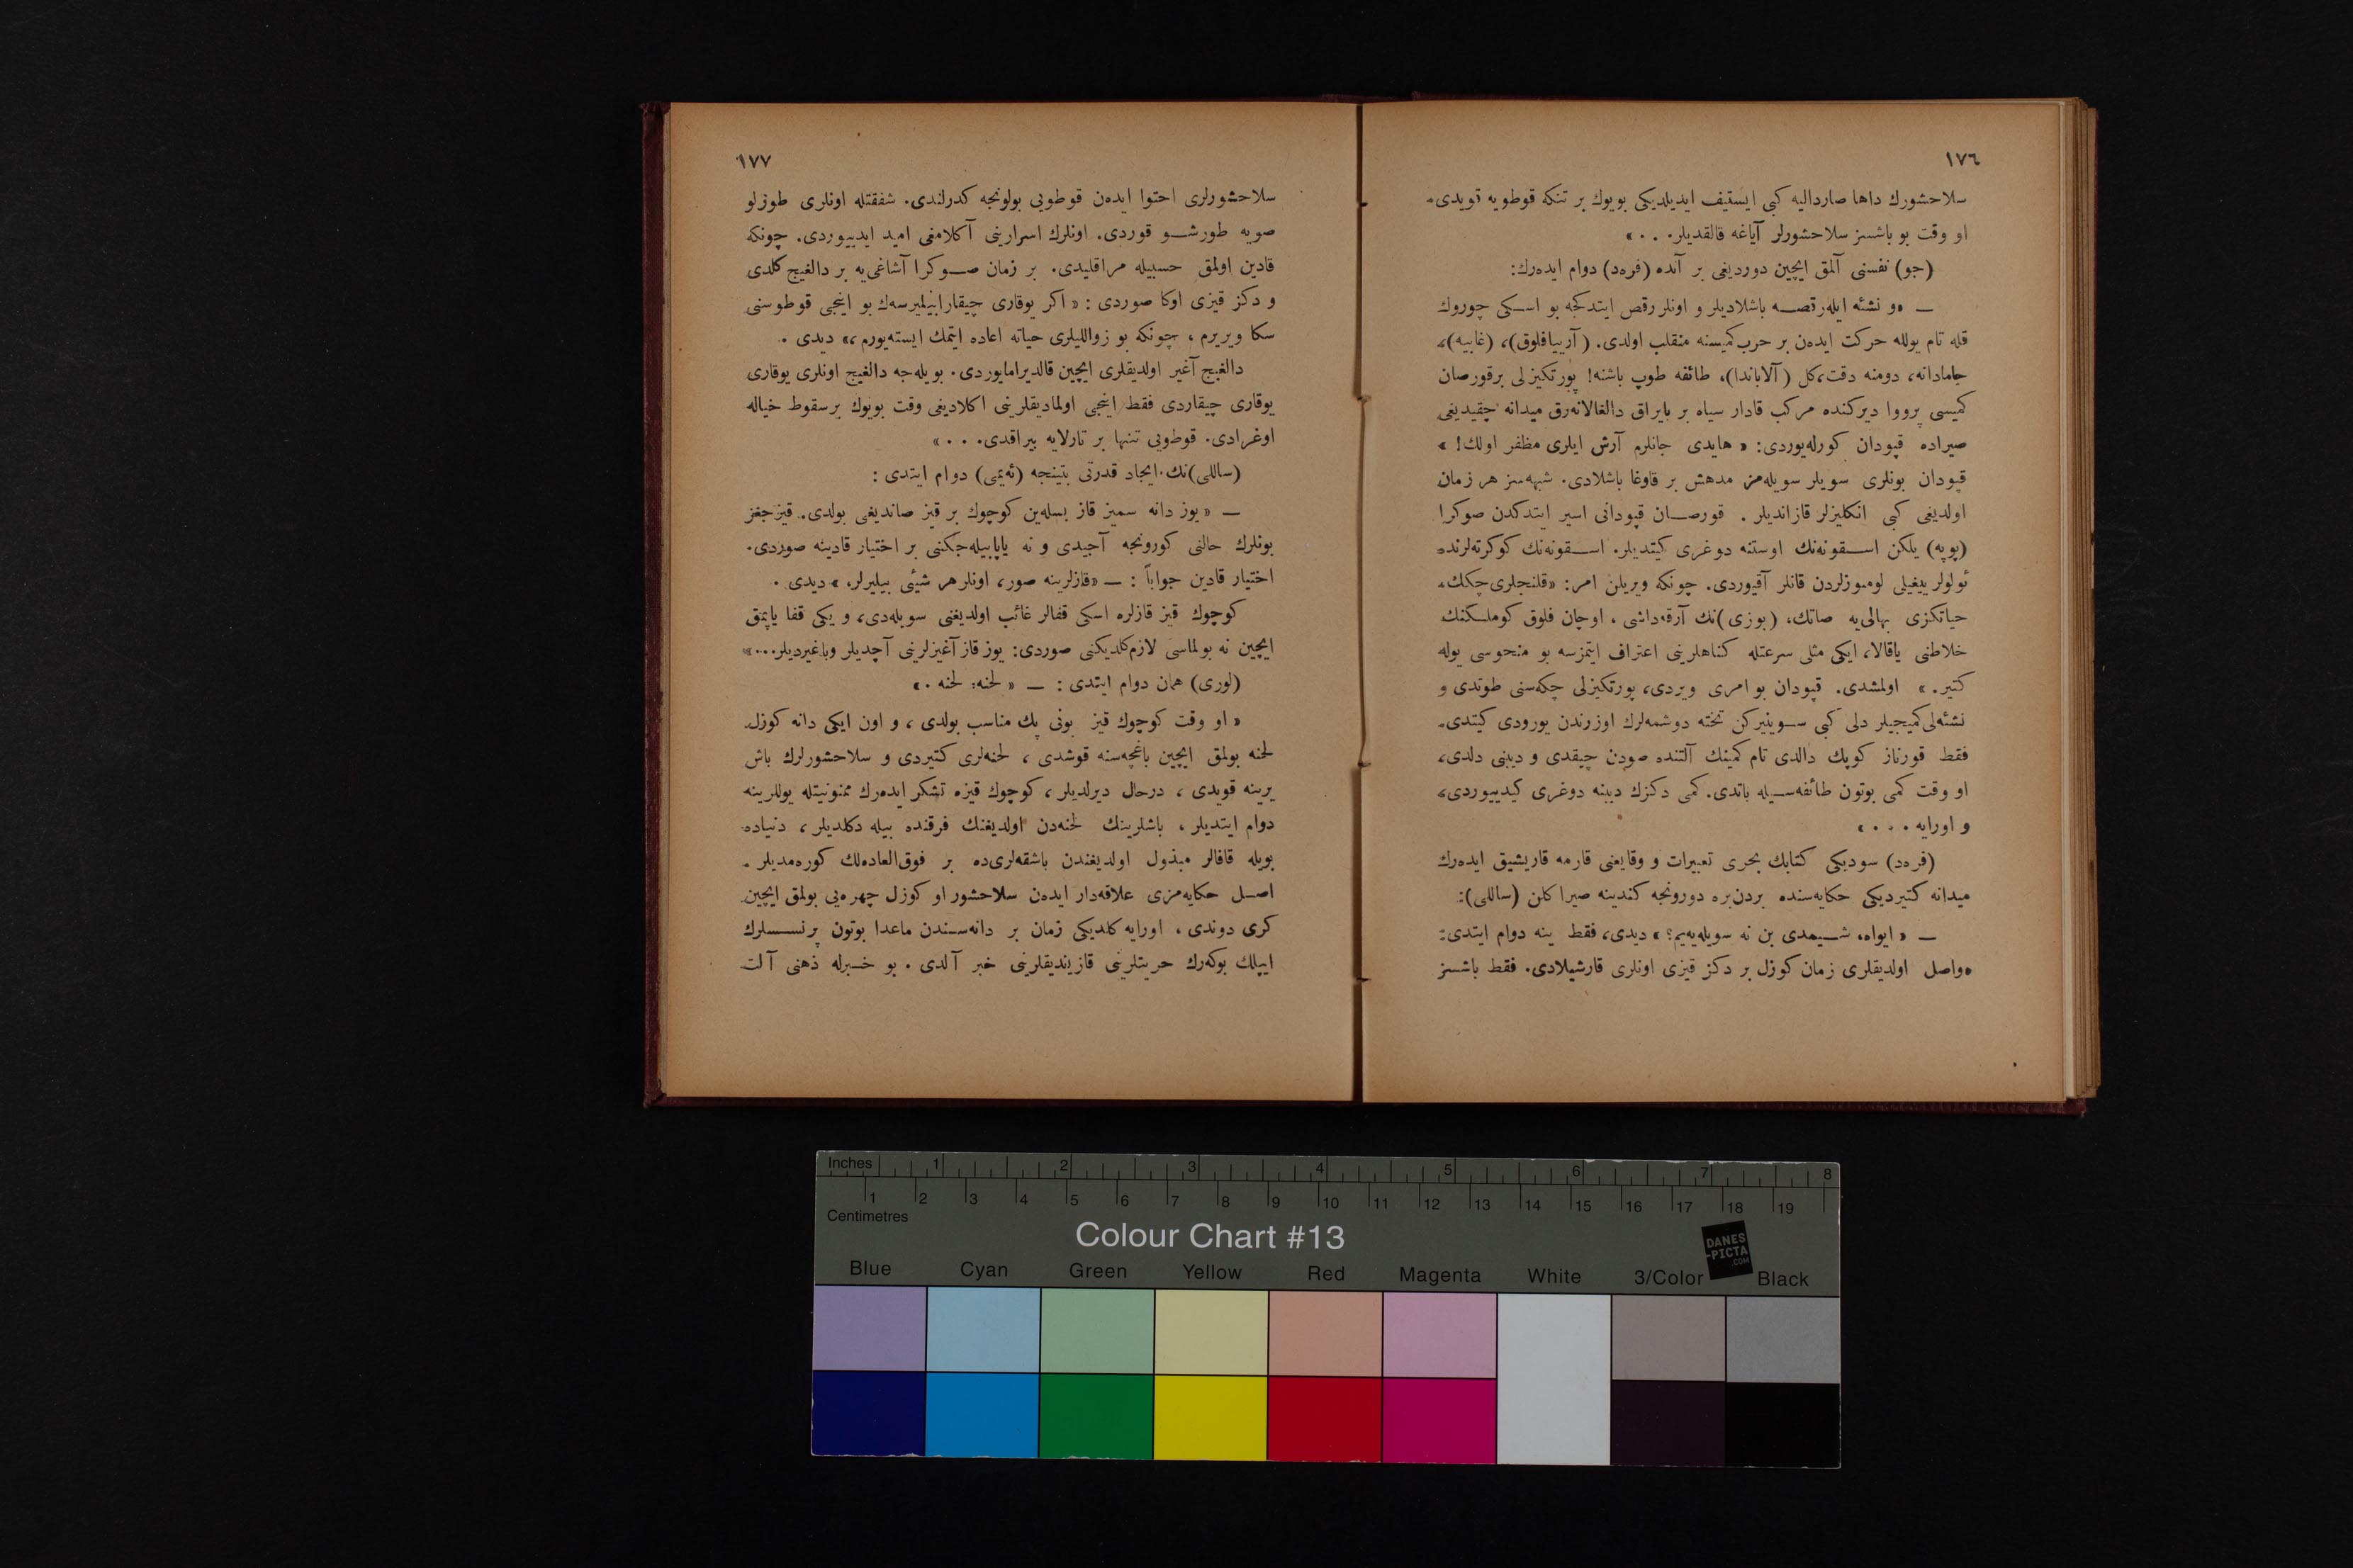 ١٧٦
سلاحشورك داها صارداليه كبى ايستيف ايديلديكى بويوك بر تنكه قوطويه قويدى.
او وقت بو باشسز سلاحشورلر آياغه قالقديلر. . . »
(جو) نفسنى آلمق ايچين دورديغى بر آنده (فره‌د) دوام ايده‌رك:
— «و نشئه ايله رقصه باشلاديلر و اونلر رقص ايتدكجه بو اسكى چوروك
قله تام يولله حركت ايدن بر حرب كميسنه منقلب اولدى. (آريبافلوق)، (غابيه)،
جامادانه، دومنه دقت، كل (آلاباندا)، طائفه طوپ باشنه! پورتكيزلى برقورصان
كميسى پرووا ديركنده مركب قادار سياه بر بايراق دالغالانه‌رق ميدانه چقيديغى
صيراده قپودان كورله‌يوردى: « هايدى جانلرم آرش ايلرى مظفر اولك! »
قپودان بونلرى سويلر سويله‌مز مدهش بر قاوغا باشلادى. شبهه‌سز هر زمان
اولديغى كبى انكليزلر قازانديلر . قورصان قپودانى اسير ايتدكدن صوكرا
(پوپه) يلكن اسقونه‌نك اوستنه دوغرى كيتديلر. اسقونه‌نك كوكرته‌لرنده
ئولولر ييغيلى لومبوزلردن قانلر آقيوردى. چونكه ويريلن امر: «قلنجلرى چكك،
حياتكزى بهالى‌يه صاتك، (بوزى)نك آرقه‌داشى ، اوچان فلوق كوملكنك
خلاطنى ياقالا، ايكى مثلى سرعتله كناهلرينى اعتراف ايتمزسه بو منحوسى يوله
كتير. » اولمشدى. قپودان بو امرى ويردى، پورتكيزلى چكه‌سنى طوتدى و
نشئه‌لى كميجيلر دلى كبى سوينيركن تخته دوشمه‌لرك اوزرندن يورودى كيتدى.
فقط قورناز كوپك دالدى تام كمينك آلتنده صودن چيقدى و ديبنى دلدى،
او وقت كمى بوتون طائفه‌سيله باتدى. كمى دكزك ديبنه دوغرى كيدييوردى،
و اورايه . . . »
(فره‌د) سوديكى كتابك بحرى تعبيرات و وقايعنى قارمه قاريشيق ايده‌رك
ميدانه كتيرديكى حكايه‌سنده بردن‌بره دورونجه كندينه صيرا كلن (ساللى):
— « ايواه، شيمدى بن نه سويله‌يه‌يم؟ » ديدى، فقط ينه دوام ايتدى:
«واصل اولديقلرى زمان كوزل بر دكز قيزى اونلرى قارشيلادى. فقط باشسز
١٧٧
سلاحشورلرى احتوا ايده‌ن قوطويى بولونجه كدرلندى. شفقتله اونلرى طوزلو
صويه طورشو قوردى. اونلرك اسرارينى آكلامغى اميد ايدييوردى. چونكه
قادين اولمق حسبيله مراقليدى. بر زمان صوكرا آشاغى‌يه بر دالغيج كلدى
و دكز قيزى اوكا صوردى : « اكر يوقارى چيقارابيليرسه‌ك بو اينجى قوطوسنى
سكا ويريرم ، چونكه بو زوالليلرى حياته اعاده ايتمك ايسته‌يورم ،» ديدى .
دالغيج آغير اولديقلرى ايچين قالديرامايوردى. بويله‌جه دالغيج اونلرى يوقارى
يوقارى چيقاردى فقط اينجى اولماديقلرينى اكلاديغى وقت بويوك برسقوط خياله
اوغرادى. قوطويى تنها بر تارلايه بيراقدى. . . »
(ساللى)نك ايجاد قدرتى بتينجه (ئه‌يمى) دوام ايتدى :
— « يوز دانه سميز قاز بسله‌ين كوچوك بر قيز صانديغى بولدى. قيزجغز
بونلرك حالنى كورونجه آجيدى و نه ياپابيله‌جكنى بر اختيار قادينه صوردى.
اختيار قادين جواباً : — «قازلرينه صور، اونلر هر شيئى بيليرلر. » ديدى .
كوچوك قيز قازلره اسكى قفالر غائب اولديغنى سويله‌دى، و يكى قفا ياپمق
ايچين نه بولماسى لازم كلديكنى صوردى: يوز قاز آغيزلرينى آچديلر وباغيرديلر...»
(لورى) همان دوام ايتدى : — « لحنه: لحنه .»
« او وقت كوچوك قيز بونى پك مناسب بولدى ، و اون ايكى دانه كوزل
لحنه بولمق ايچين باغچه‌سنه قوشدى ، لحنه‌لرى كتيردى و سلاحشورلرك باش
يرينه قويدى ، درحال ديرلديلر ، كوچوك قيزه تشكر ايده‌رك ممنونيتله يوللرينه
دوام ايتديلر ، باشلرينك لحنه‌دن اولديغنك فرقنده بيله دكلديلر ، دنياده
بويله قافالر مبذول اولديغندن باشقه‌لرى‌ده بر فوق‌العاده‌لك كوره‌مديلر .
اصل حكايه‌مزى علاقه‌دار ايده‌ن سلاحشور او كوزل چهره‌يى بولمق ايچين
كرى دوندى ، اورايه كلديكى زمان بر دانه‌سندن ماعدا بوتون پرنسسلرك
ايپلك بوكه‌رك حريتلرينى قازينديقلرينى خبر آلدى . بو خبرله ذهنى آلت
Inches 1 2 3 4 5 6 7 8
1 2 3 4 5 6 7 8 9 10 11 12 13 14 15 16 17 18 19
Centimetres
Colour Chart #13
DANES
-PICTA
.COM
Blue Cyan Green Yellow Red Magenta White 3/Color Black